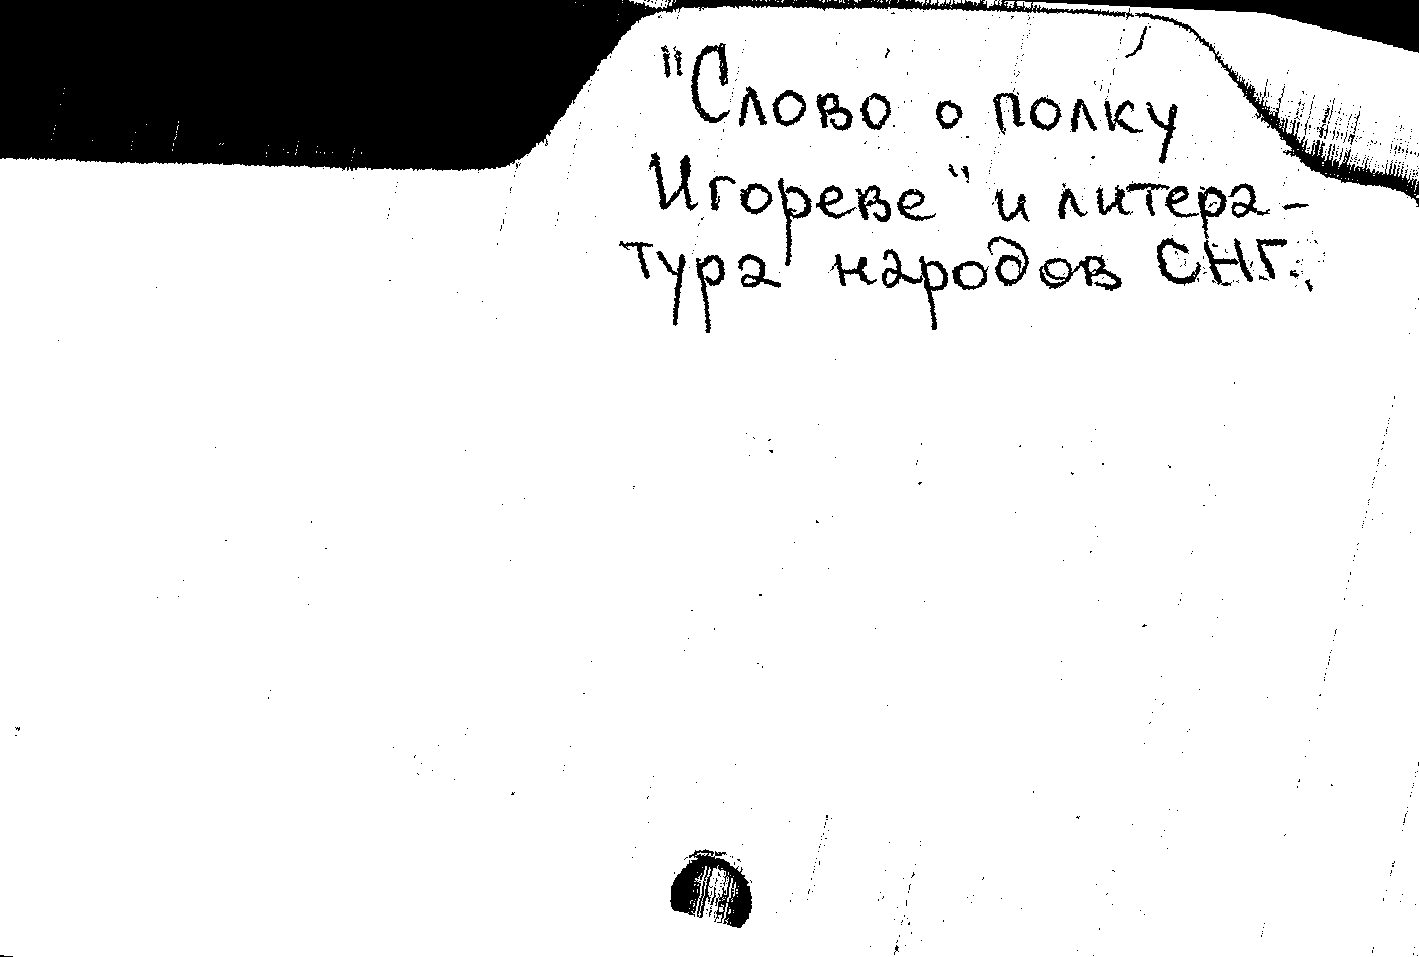 "Слово о полку
Игореве" и литера-
тура народов СНГ.